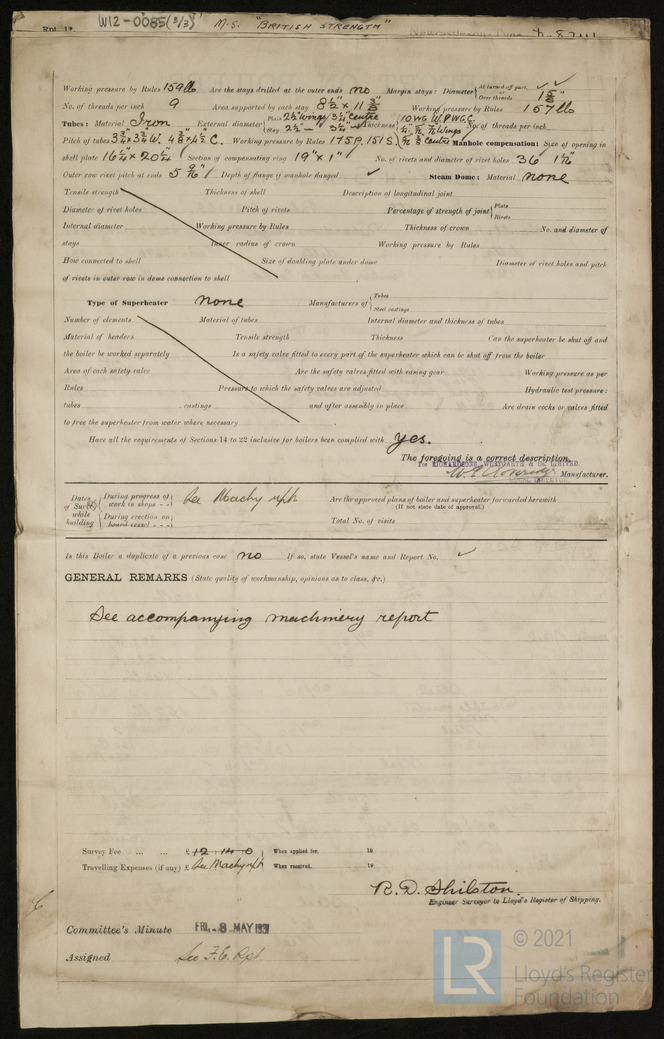 Rpt. 1*. W12-0085(3/3) M.S. "BRITISH STRENGTH"
Working pressure by Rules 159 lb Are the stays drilled at the outer ends no Margin stays: Diameter { At turned off part, ✓ ✓
Over threads 1 5/8"
No. of threads per inch 9 Area supported by each stay 8 1/2" x 11 3/8" Working pressure by Rules 157 lb
Tubes: Material Iron External diameter { Plain 2 1/2" Wings 3 1/4" Centre Thickness { 10WG W. 9WG C.
Stay 2 1/2" - " 3 1/4" No. of threads per inch
Pitch of tubes 3 3/4 x 3 3/4 W. 4 3/8 x 4 1/2 C. Working pressure by Rules 175 P. 151 S. Manhole compensation: Size of opening in
shell plate 16 1/4 x 20 1/4 Section of compensating ring 19" x 1" No. of rivets and diameter of rivet holes 36 1 1/16"
Outer row rivet pitch at ends 5 9/16" Depth of flange if manhole flanged ✓ Steam Dome: Material none
Tensile strength Thickness of shell Description of longitudinal joint
Diameter of rivet holes Pitch of rivets Percentage of strength of joint { Plate
Rivets
Internal diameter Working pressure by Rules Thickness of crown No. and diameter of
stays Inner radius of crown Working pressure by Rules
How connected to shell Size of doubling plate under dome Diameter of rivet holes and pitch
of rivets in outer row in dome connection to shell
Type of Superheater none Manufacturers of { Tubes
Steel castings
Number of elements Material of tubes Internal diameter and thickness of tubes
Material of headers Tensile strength Thickness Can the superheater be shut off and
the boiler be worked separately Is a safety valve fitted to every part of the superheater which can be shut off from the boiler
Area of each safety valve Are the safety valves fitted with easing gear Working pressure as per
Rules Pressure to which the safety valves are adjusted Hydraulic test pressure:
tubes castings and after assembly in place Are drain cocks or valves fitted
to free the superheater from water where necessary
Have all the requirements of Sections 14 to 22 inclusive for boilers been complied with yes.
The foregoing is a correct description,
For RICHARDSONS, WESTGARTH & Co. LIMITED.
Manufacturer.
Dates of Survey while building { During progress of work in shops - - } See Machy rpt Are the approved plans of boiler and superheater forwarded herewith
(If not state date of approval.)
{ During erection on board vessel - - - } Total No. of visits
Is this Boiler a duplicate of a previous case no If so, state Vessel's name and Report No. ✓
GENERAL REMARKS (State quality of workmanship, opinions as to class, &c.)
See accompanying machinery report
Survey Fee ... ... £ 12 14 0 When applied for, 19
Travelling Expenses (if any) £ See Machy rpt When received, 19
R.D. Shilston.
Engineer Surveyor to Lloyd's Register of Shipping.
Committee's Minute FRI. 8 MAY 1931
Assigned See F.E. Rpt
LR © 2021
Lloyd's Register
Foundation